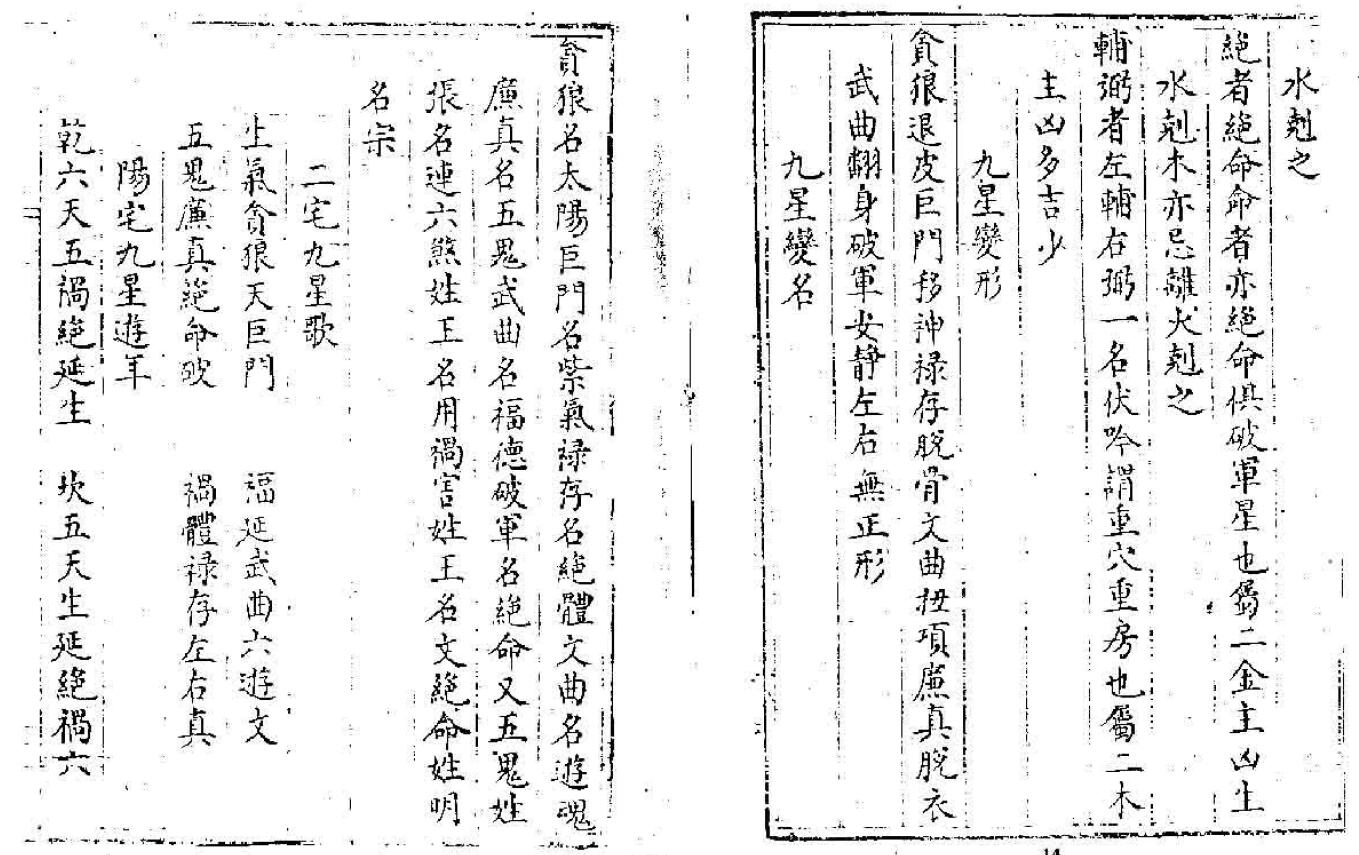 水剋之
絕者絕命命者亦絕命俱破軍星也屬二金主凶生
水剋木亦忌離火剋之
輔弼者左輔右弼一名伏吟謂重穴重房也屬二木
主凶多吉少
九星變形
貪狼退皮巨門移神禄存脫骨文曲扭項廉真脫衣
武曲翻身破軍安靜左右無正形
九星變名
貪狼名太陽巨門名紫氣禄存名絕體文曲名遊魂
廉真名五鬼武曲名福德破軍名絕命又五鬼姓
張名連六煞姓王名用禍害姓王名文絕命姓明
名宗
二宅九星歌
生氣貪狼天巨門 福延武曲六遊文
五鬼廉真絕命破 禍體禄存左右真
陽宅九星遊年
乾六天五禍絕延生 坎五天生延絕禍六
14